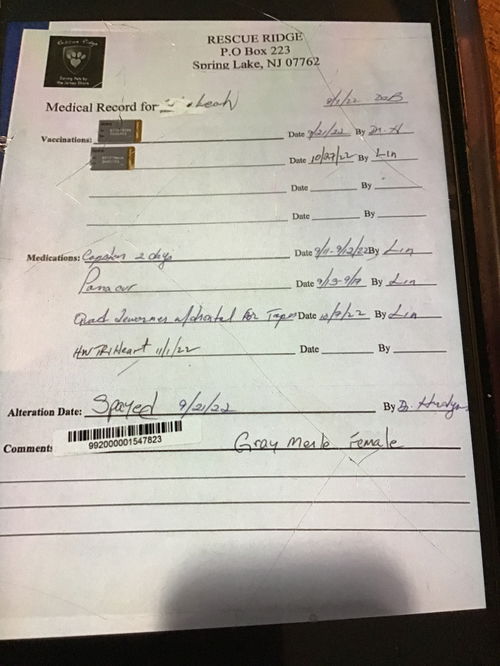 Rescue Ridge
RESCUE RIDGE
P.O Box 223
Spring Lake, NJ 07762
Saving Pets by
the Jersey Shore
Medical Record for Leah 8/1/22 DOB
Vaccinations: Date 9/21/22 By Dr. H
Date 10/27/22 By Lin
Date By
Date By
Medications: 2 days Date 9/11-9/12/22 By Lin
Panacur Date 9/13-9/17 By Lin
Quad Dewormer w/drontal For Tapes Date 10/7/22 By Lin
HW TRiHeart 11/1/22 Date By
Alteration Date: Spayed 9/21/22 By Dr.
992000001547823
Comments Gray Merle Female